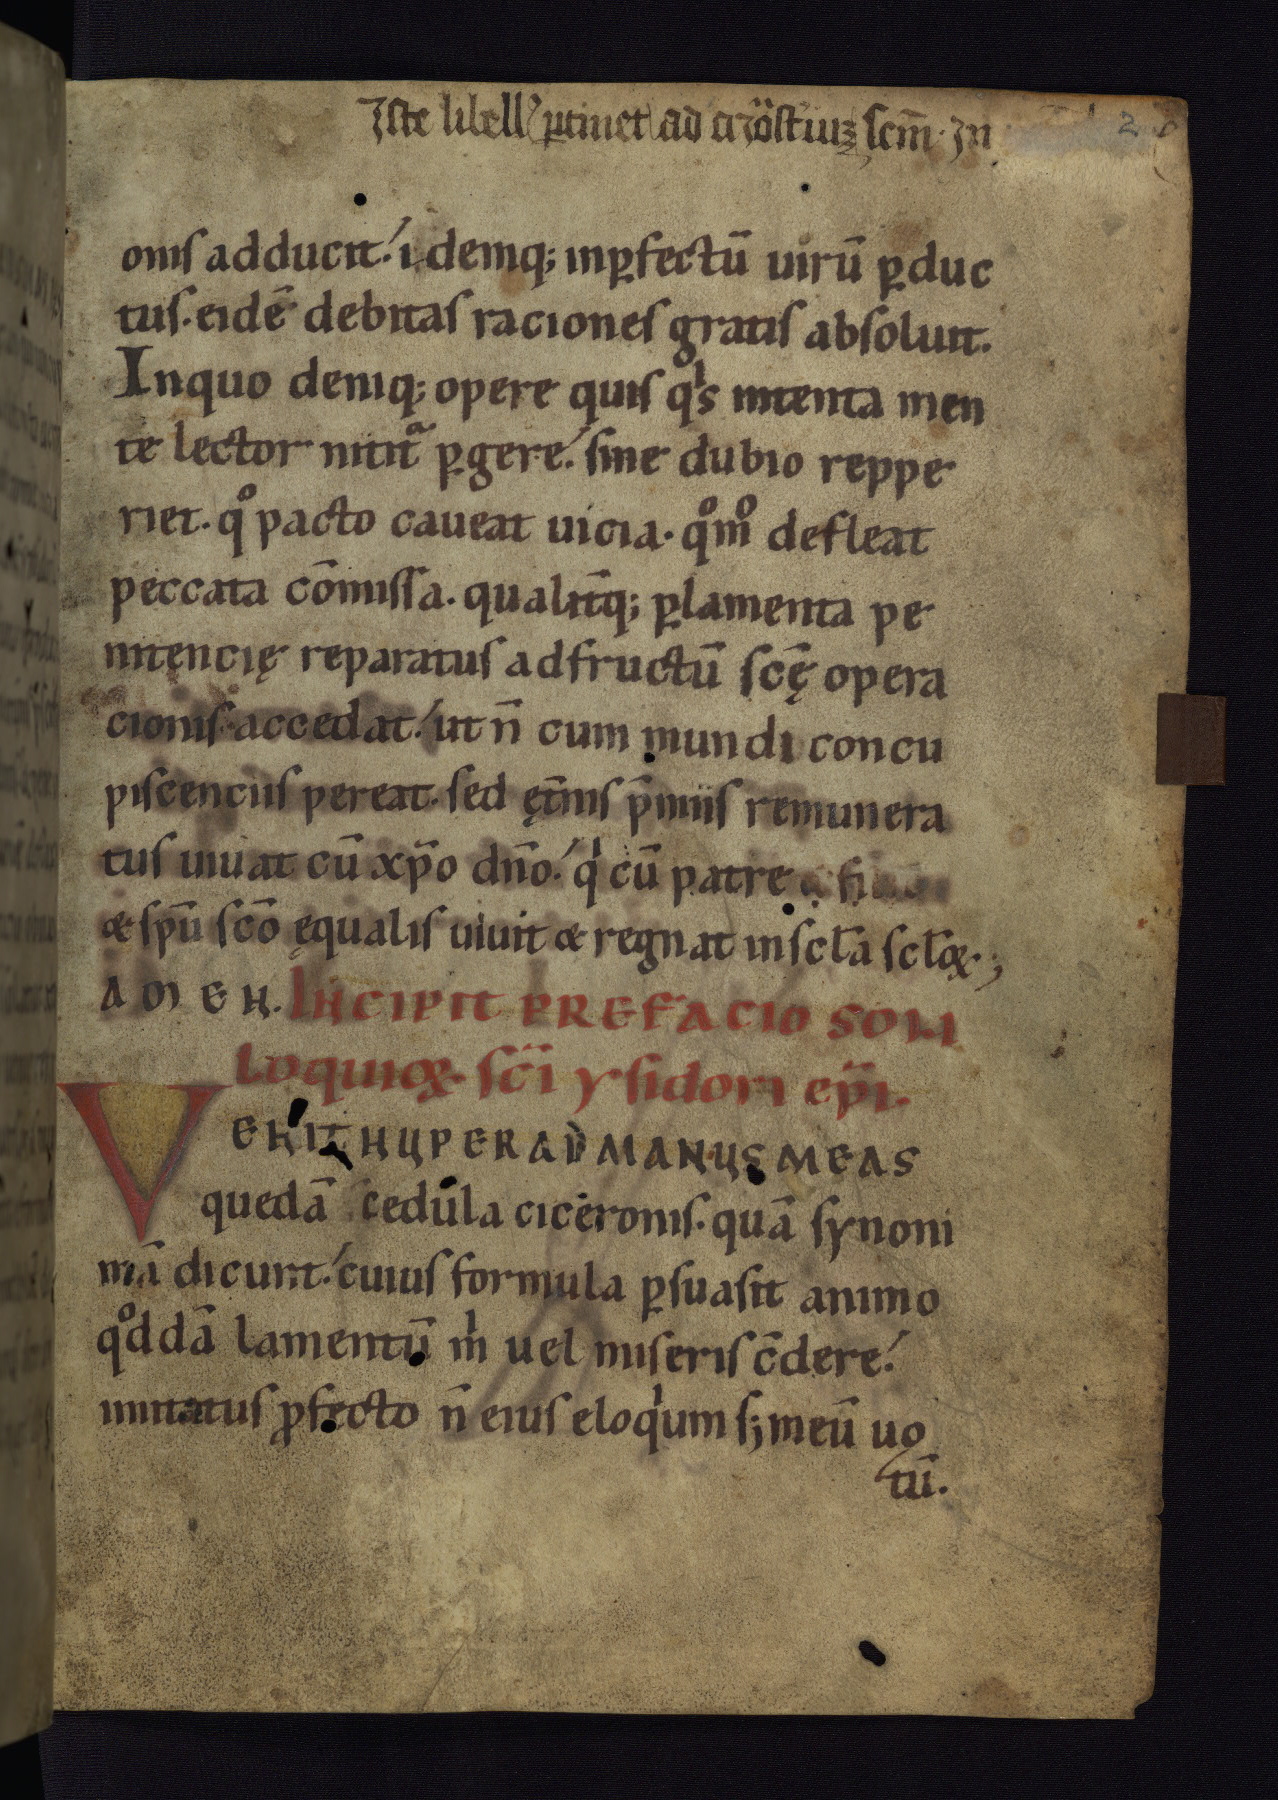 Iste libell᾽ ꝑtinet ad mōsteriuꝫ scm̄ · In
2
onis adducit. i demq; inꝑfectū uirū ꝑduc
tus. eidē debitas raciones gratis absoluit.
In quo deniq; opere quis qͥs intenta men
te lector nitit̄ᵃ ꝑgere. sine dubio reppe
riet. qͦ pacto caueat uicia. qͦmͦ defleat
peccata cōmissa. qualit̄q; ꝑlamenta pe
nitencię reparatus ad fructū scę̄ opera
cionis accedat. ut n̄ cum mundi concu
piscenciis pereat. sed ęt̄nis p̄miis remunera
tus uiuat cū xp̄o dn̄o. qͥ cū patre
& sp̄u sc̄o ęqualis uiuit & regnat in scl̄a scl̄oꝝ.;
AMEN. INCIPIT PREFACIO SOLI
loquioꝝ. sc̄i ysidori ep̄i.
VENIT NUPER AD MANUS MEAS
quedā cedula ciceronis. quā synoni
mā dicunt. cuius formula ꝑsuasit animo
qͦddā lamentū mͥ uel miseris c̄dere.
imitatus ꝓfecto n̄ eius eloqͥum sꝫ meū uo
tū.